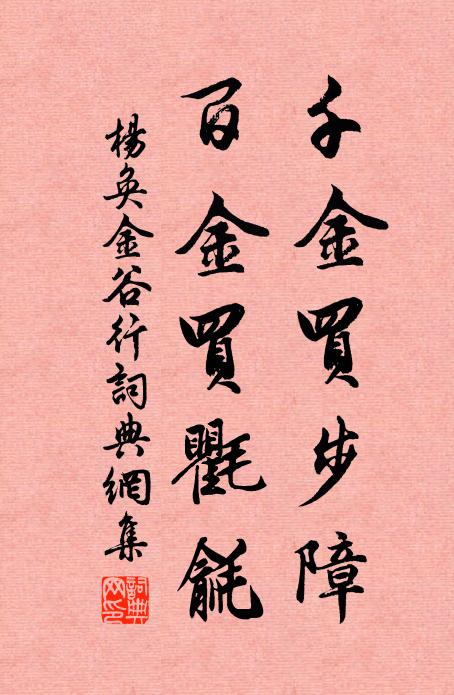 千金買步障
百金買氍毹
楊奐金谷行詞典網集
詞典网印